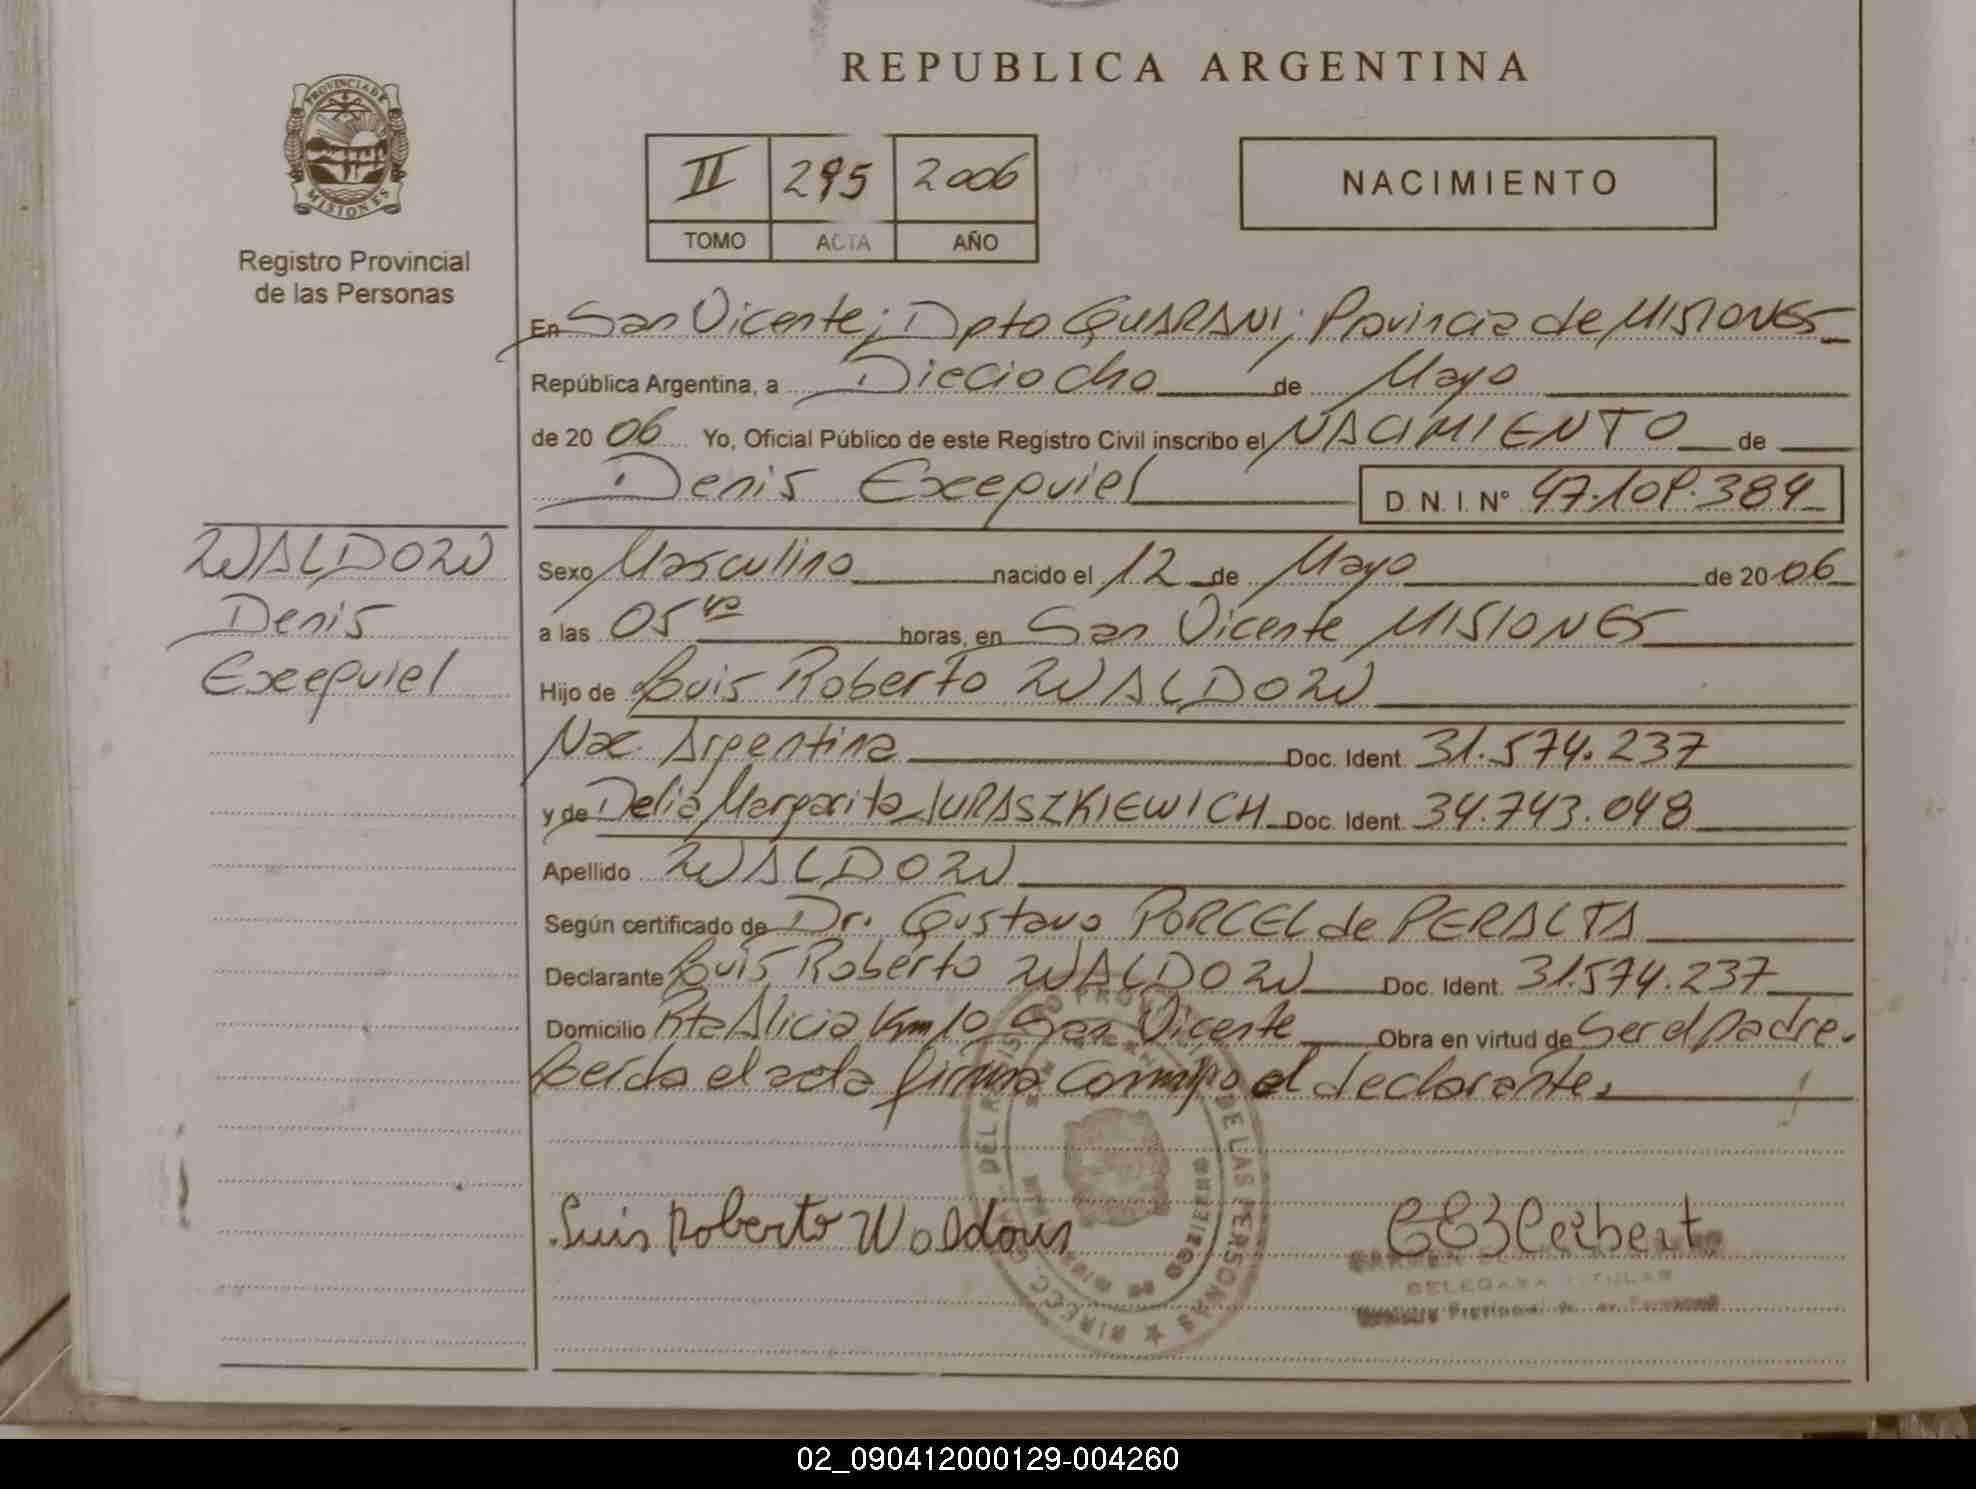 REPUBLICA ARGENTINA
PROVINCIA DE
MISIONES
Registro Provincial
de las Personas
II 295 2006
TOMO ACTA AÑO
NACIMIENTO
En San Vicente; Dpto GUARANI; Provincia de MISIONES
República Argentina, a Dieciocho de Mayo
de 20 06 Yo, Oficial Público de este Registro Civil inscribo el NACIMIENTO de
Denis Exequiel D. N. I. N° 47.109.384
WALDOW
Denis
Exequiel
Sexo Masculino nacido el 12 de Mayo de 20 06
a las 05 horas, en San Vicente MISIONES
Hijo de Luis Roberto WALDOW
Nac. Argentina Doc. Ident. 31.574.237
y de Delia Margarita JURASZKIEWICH Doc. Ident. 34.743.048
Apellido WALDOW
Según certificado de Dr. Gustavo PORCEL de PERALTA
Declarante Luis Roberto WALDOW Doc. Ident. 31.574.237
Domicilio Rta Alicia Km 10 San Vicente Obra en virtud de Ser el padre.
Leida el acta firma conmigo el declarante.
Luis Roberto Waldow
DELEGADA TITULAR
Registro Provincial de las Personas
DEL REGISTRO PROVINCIAL DE LAS PERSONAS
02_090412000129-004260